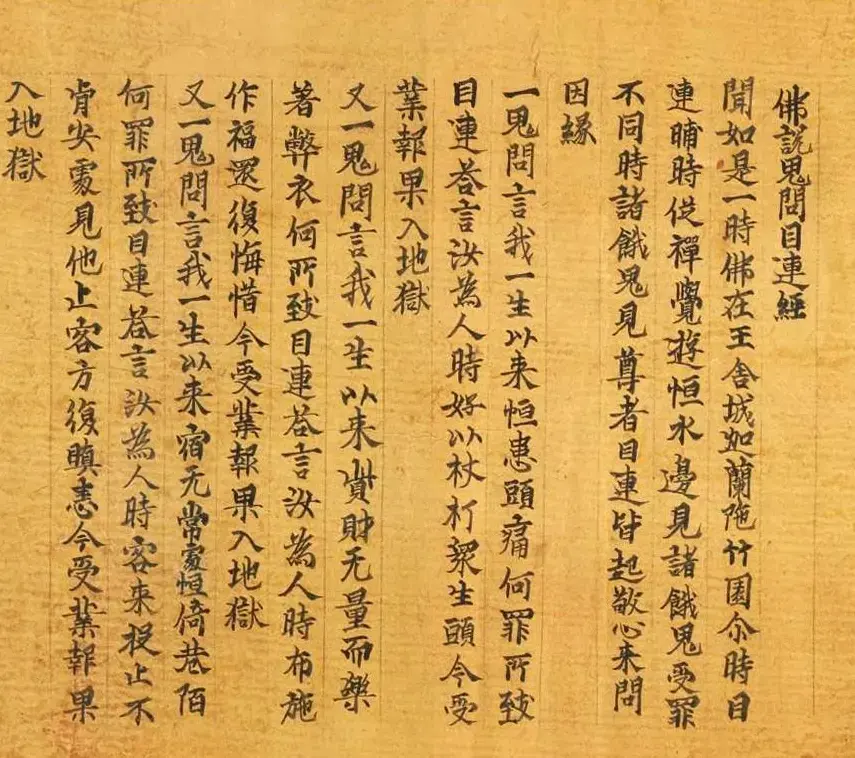 佛說鬼問目連經
聞如是一時佛在王舍城如蘭陁竹園尒時目
連晡時從禪覺遊恒水邊見諸餓鬼受罪
不同時諸餓鬼見尊者目連皆起敬心来問
因緣
一鬼問言我一生以来恒患頭痛何罪所致
目連荅言汝為人時好以杖打衆生頭今受
業報果入地獄
又一鬼問言我一生以来資財无量而樂
著弊衣何所致目連荅言汝為人時布施
作福還復悔惜今受業報果入地獄
又一鬼問言我一生以来宿无常處恒倚巷陌
何罪所致目連荅言汝為人時客来投止不
肯安處見他止客方復瞋恚今受業報果
入地獄